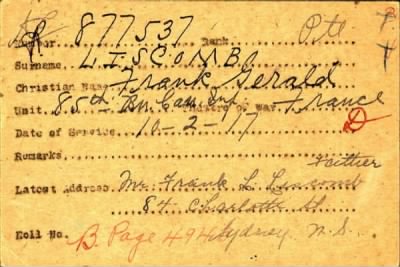 Number 877537 Rank Pte
Surname LISCOMB
Christian Name Frank Gerald
Unit 85th Bn. Can. Inf. Theatre of War France
Date of Service 10-2-17
Remarks
Father
Latest Address Mr. Frank L. Liscomb
84 Charlotte St
Roll No. B. Page 494 Sydney N.S.